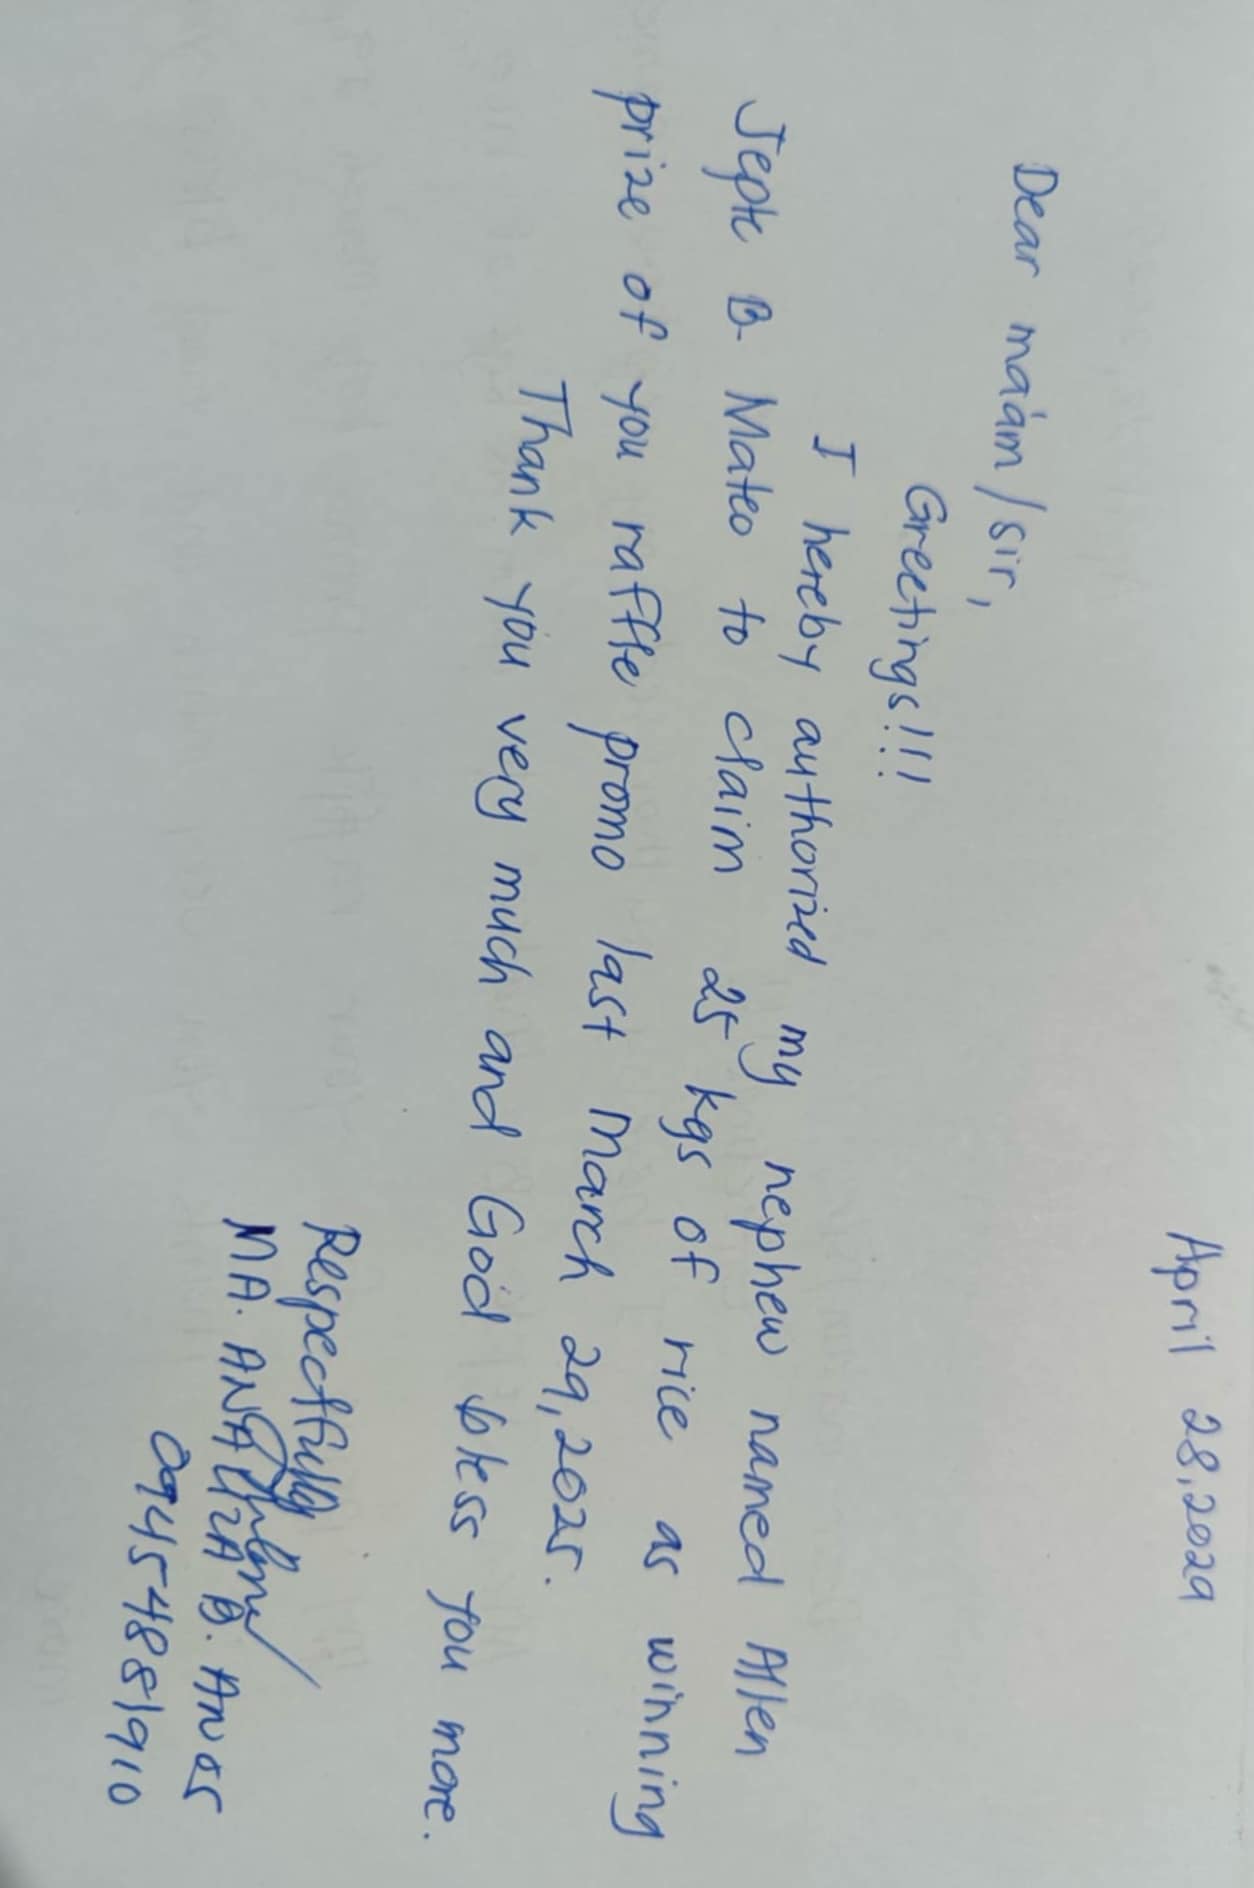 April 28, 2029
Dear maám/sir,
Greetings!!!
I hereby authorized my nephew named Allen
Jepte B. Mateo to claim 25 kgs of rice as winning
prize of you raffle promo last March 29, 2025.
Thank you very much and God bless you more.
Respectfully
MA. ANALIZA B.
09454881910